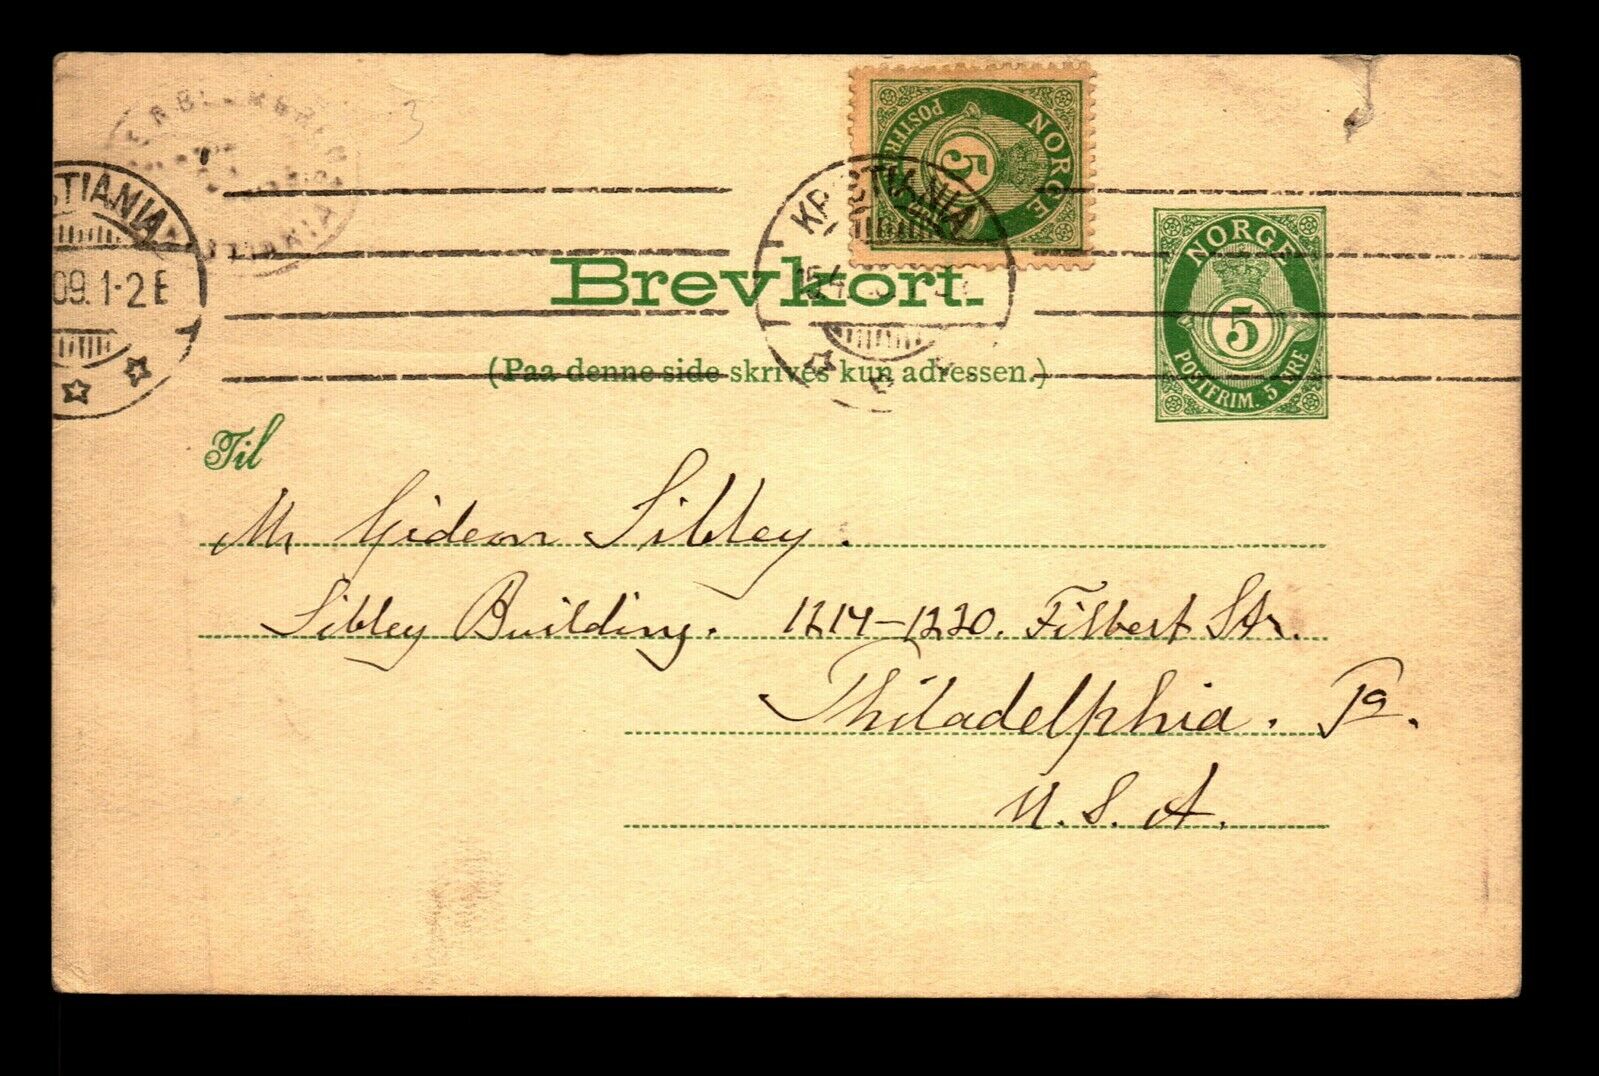 3
NORGE
5
POSTFRIM
KRISTIANIA
15.4.
STIANIA
09. 1-2 E
Brevkort.
NORGE
5
POSTFRIM. 5 ØRE
(Paa denne side skrives kun adressen.)
Til
Mr Gideon Sibley.
Sibley Building. 1214-1220. Filbert Str.
Philadelphia. Pa.
U. S. A.